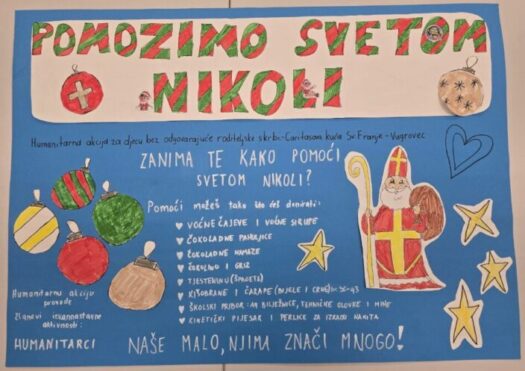 POMOZIMO SVETOM
NIKOLI
Humanitarna akcija za djecu bez odgovarajuće roditeljske skrbi-Caritasova kuća Sv. Franje - Vugrovec
ZANIMA TE KAKO POMOĆI
SVETOM NIKOLI?
Pomoći možeš tako što ćeš donirati:
♥ VOĆNE ČAJEVE I VOĆNE SIRUPE
♥ ČOKOLADNE PAHULJICE
♥ ČOKOLADNE NAMAZE
♥ ČOKOLINO I GRIZ
♥ TJESTENINU (ŠPAGETI)
♥ KIŠOBRANE I ČARAPE (BIJELE I CRNE)
♥ ŠKOLSKI PRIBOR: A4 BILJEŽNICE, TEHNIČKE OLOVKE I MINE
♥ KINETIČKI PIJESAK I PERLICE ZA IZRADU NAKITA
Humanitarnu akciju
provode
članovi izvannastavne
aktivnosti:
HUMANITARCI
NAŠE MALO, NJIMA ZNAČI MNOGO!